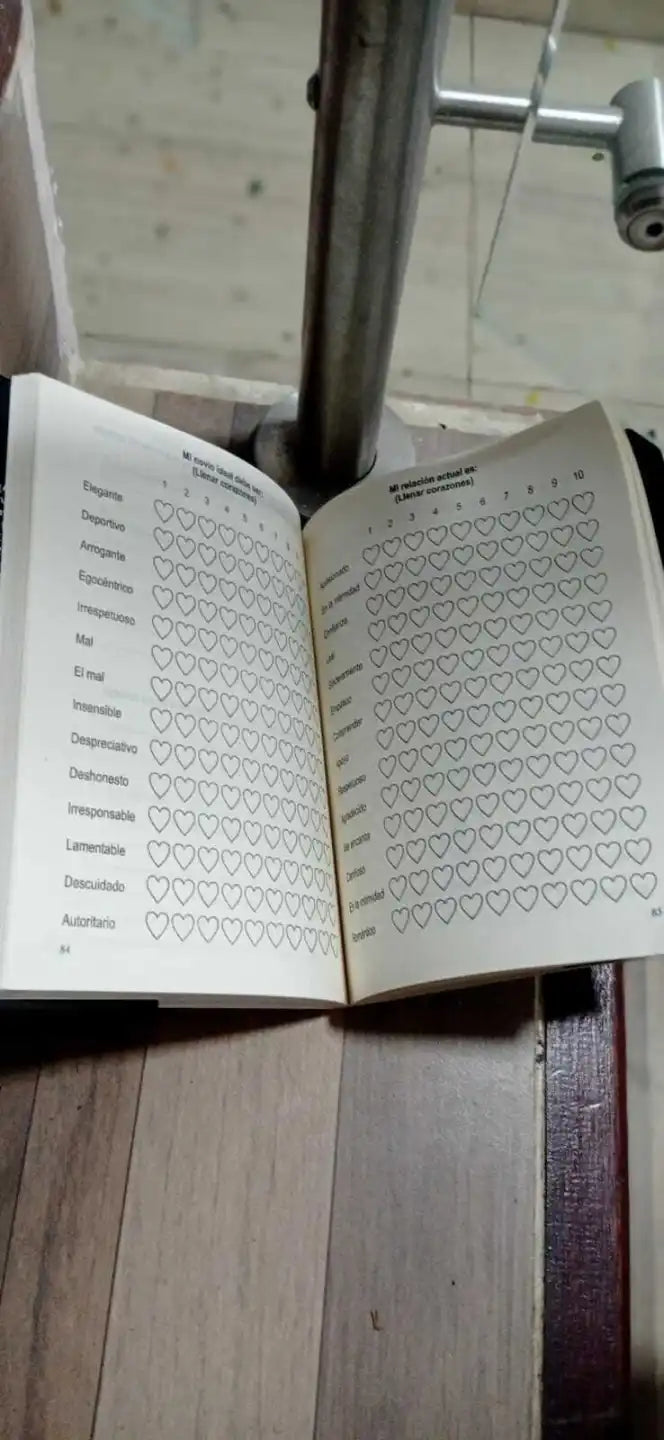 Mi novio ideal debe ser:
(Llenar corazones)
1 2 3 4 5 6 7 8
Elegante
Deportivo
Arrogante
Egocéntrico
Irrespetuoso
Mal
El mal
Insensible
Despreciativo
Deshonesto
Irresponsable
Lamentable
Descuidado
Autoritario
84
Mi relación actual es:
(Llenar corazones)
1 2 3 4 5 6 7 8 9 10
Apasionado
En la intimidad
Confianza
Leal
Comprender
Respetuoso
Agradecido
Me encanta
Cariñoso
En la intimidad
Romántico